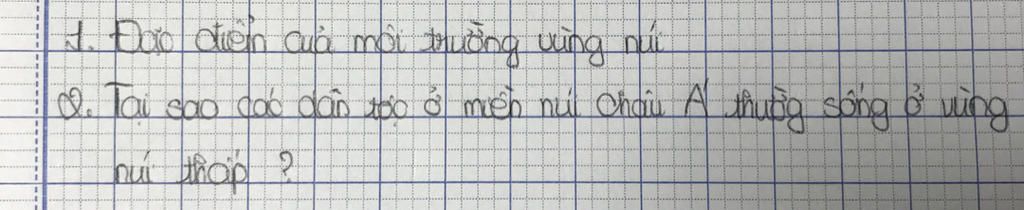 1. Đặc điểm của môi trường vùng núi
2. Tại sao các dân tộc ở miền núi châu Á thường sống ở vùng
núi thấp ?